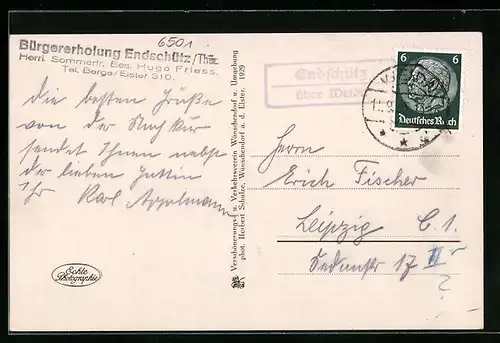 6501
Bürgererholung Endschütz/Thür.
Herrl. Sommerfr., Bes. Hugo Friess.
Tel. Berga/Elster 310.
Die besten Grüße
von der Nachkur
sendet Ihnen nebst
der lieben Gattin
Ihr Karl Appelmann
Echte
Photographie
Verschönerungs- u. Verkehrsverein Wünschendorf u. Umgebung
phot. Herbert Schulze, Wünschendorf a. d. Elster. 1929
Endschütz
über Weida
6 6
Deutsches Reich
Herrn
Erich Fischer
Leipzig C. 1.
Sedanstr 17 III
?